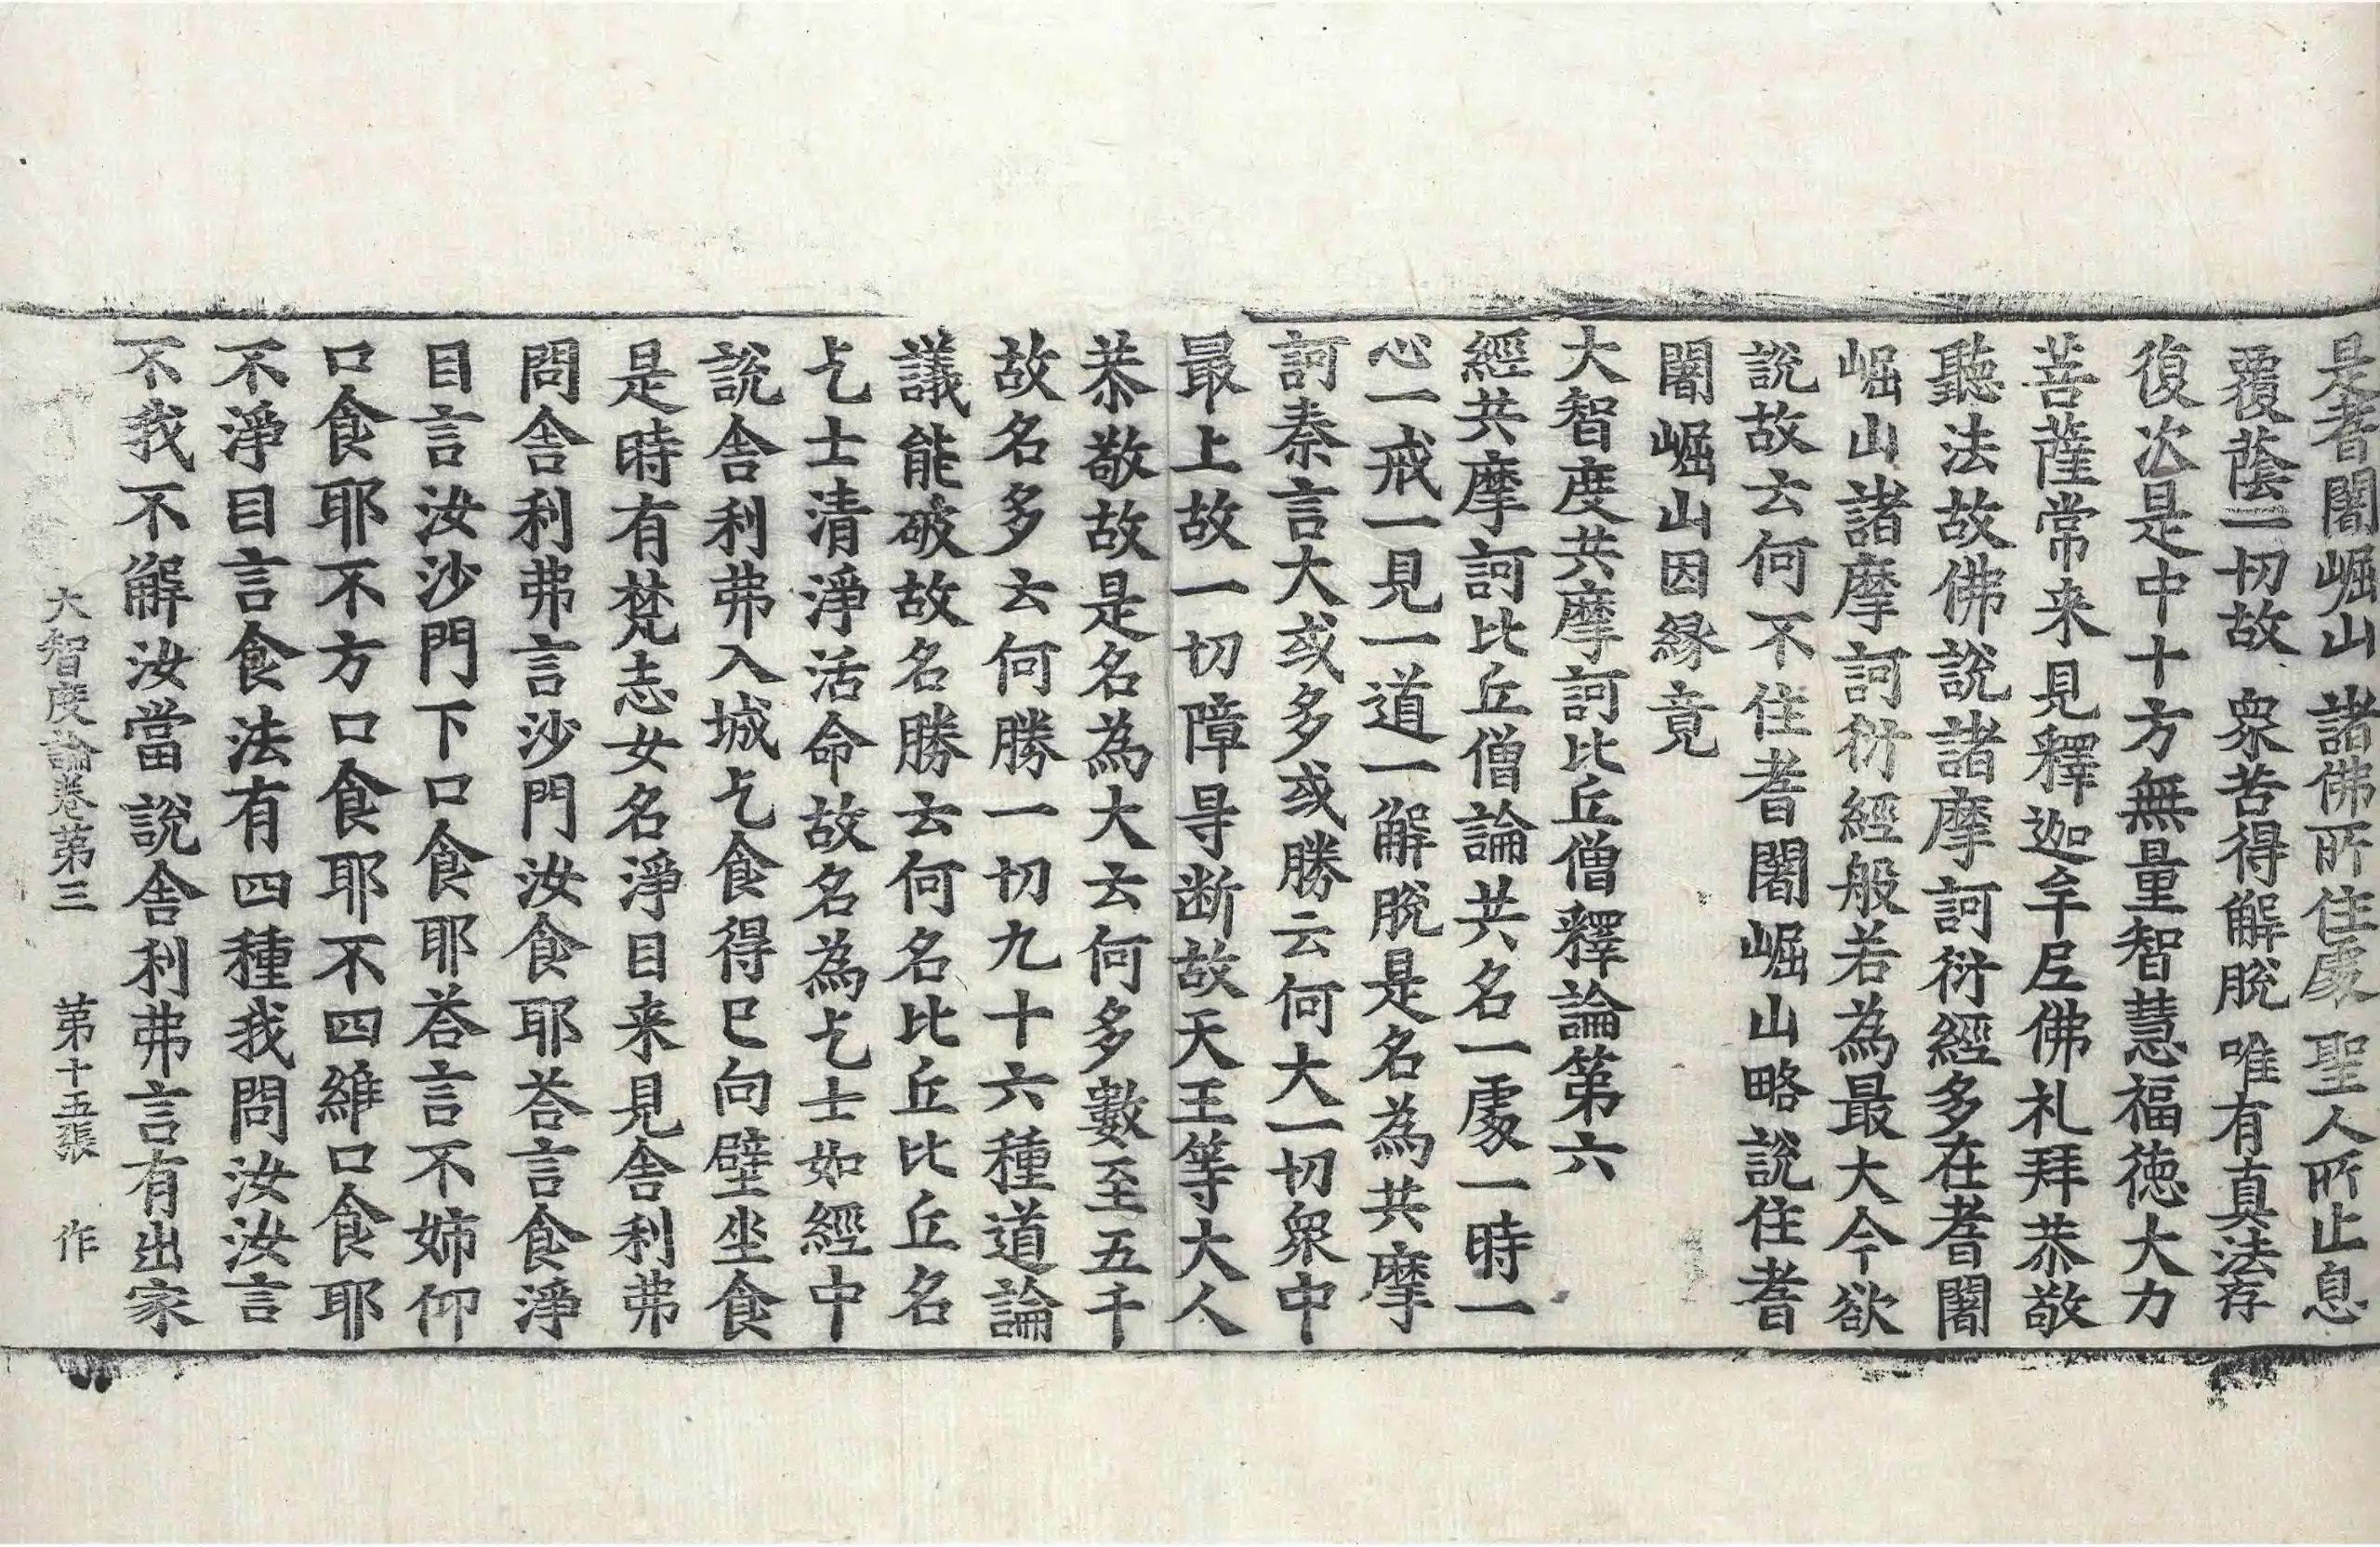 是耆闍崛山 諸佛所住處 聖人所止息
覆蔭一切故 衆苦得解脫 唯有真法存
復次是中十方無量智慧福德大力
菩薩常来見釋迦牟尼佛礼拜恭敬
聽法故佛說諸摩訶衍經多在耆闍
崛山諸摩訶衍經般若為最大今欲
說故云何不住耆闍崛山略說住耆
闍崛山因緣竟
大智度共摩訶比丘僧釋論第六
經共摩訶比丘僧論共名一處一時一
心一戒一見一道一解脫是名為共摩
訶秦言大或多或勝云何大一切衆中
最上故一切障㝵断故天王等大人
恭敬故是名為大云何多數至五千
故名多云何勝一切九十六種道論
議能破故名勝云何名比丘比丘名
乞士清淨活命故名為乞士如經中
說舍利弗入城乞食得已向壁坐食
是時有梵志女名淨目来見舍利弗
問舍利弗言沙門汝食耶荅言食淨
目言汝沙門下口食耶荅言不姉仰
口食耶不方口食耶不四維口食耶
不淨目言食法有四種我問汝汝言
不我不解汝當說舍利弗言有出家
大智度論卷第三 第十五張 作